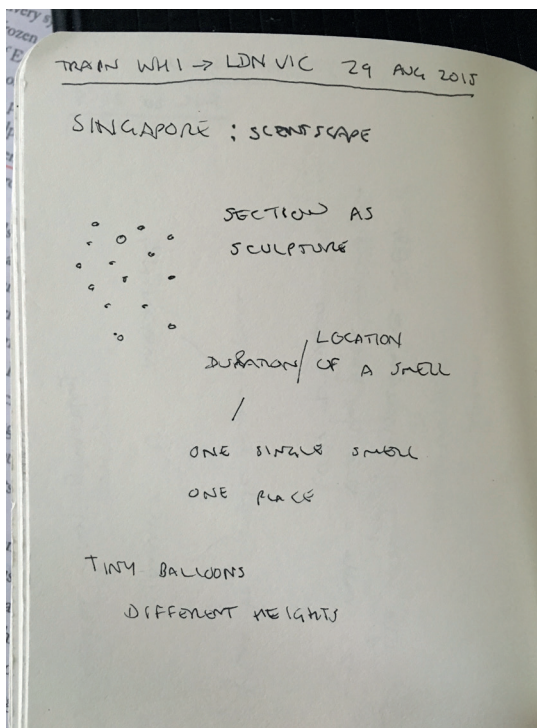 TRAIN WHI → LDN VIC 29 AUG 2015
SINGAPORE : SCENTSCAPE
SECTION AS
SCULPTURE
DURATION / LOCATION
OF A SMELL
/
ONE SINGLE SMELL
ONE PLACE
TINY BALLOONS
DIFFERENT HEIGHTS